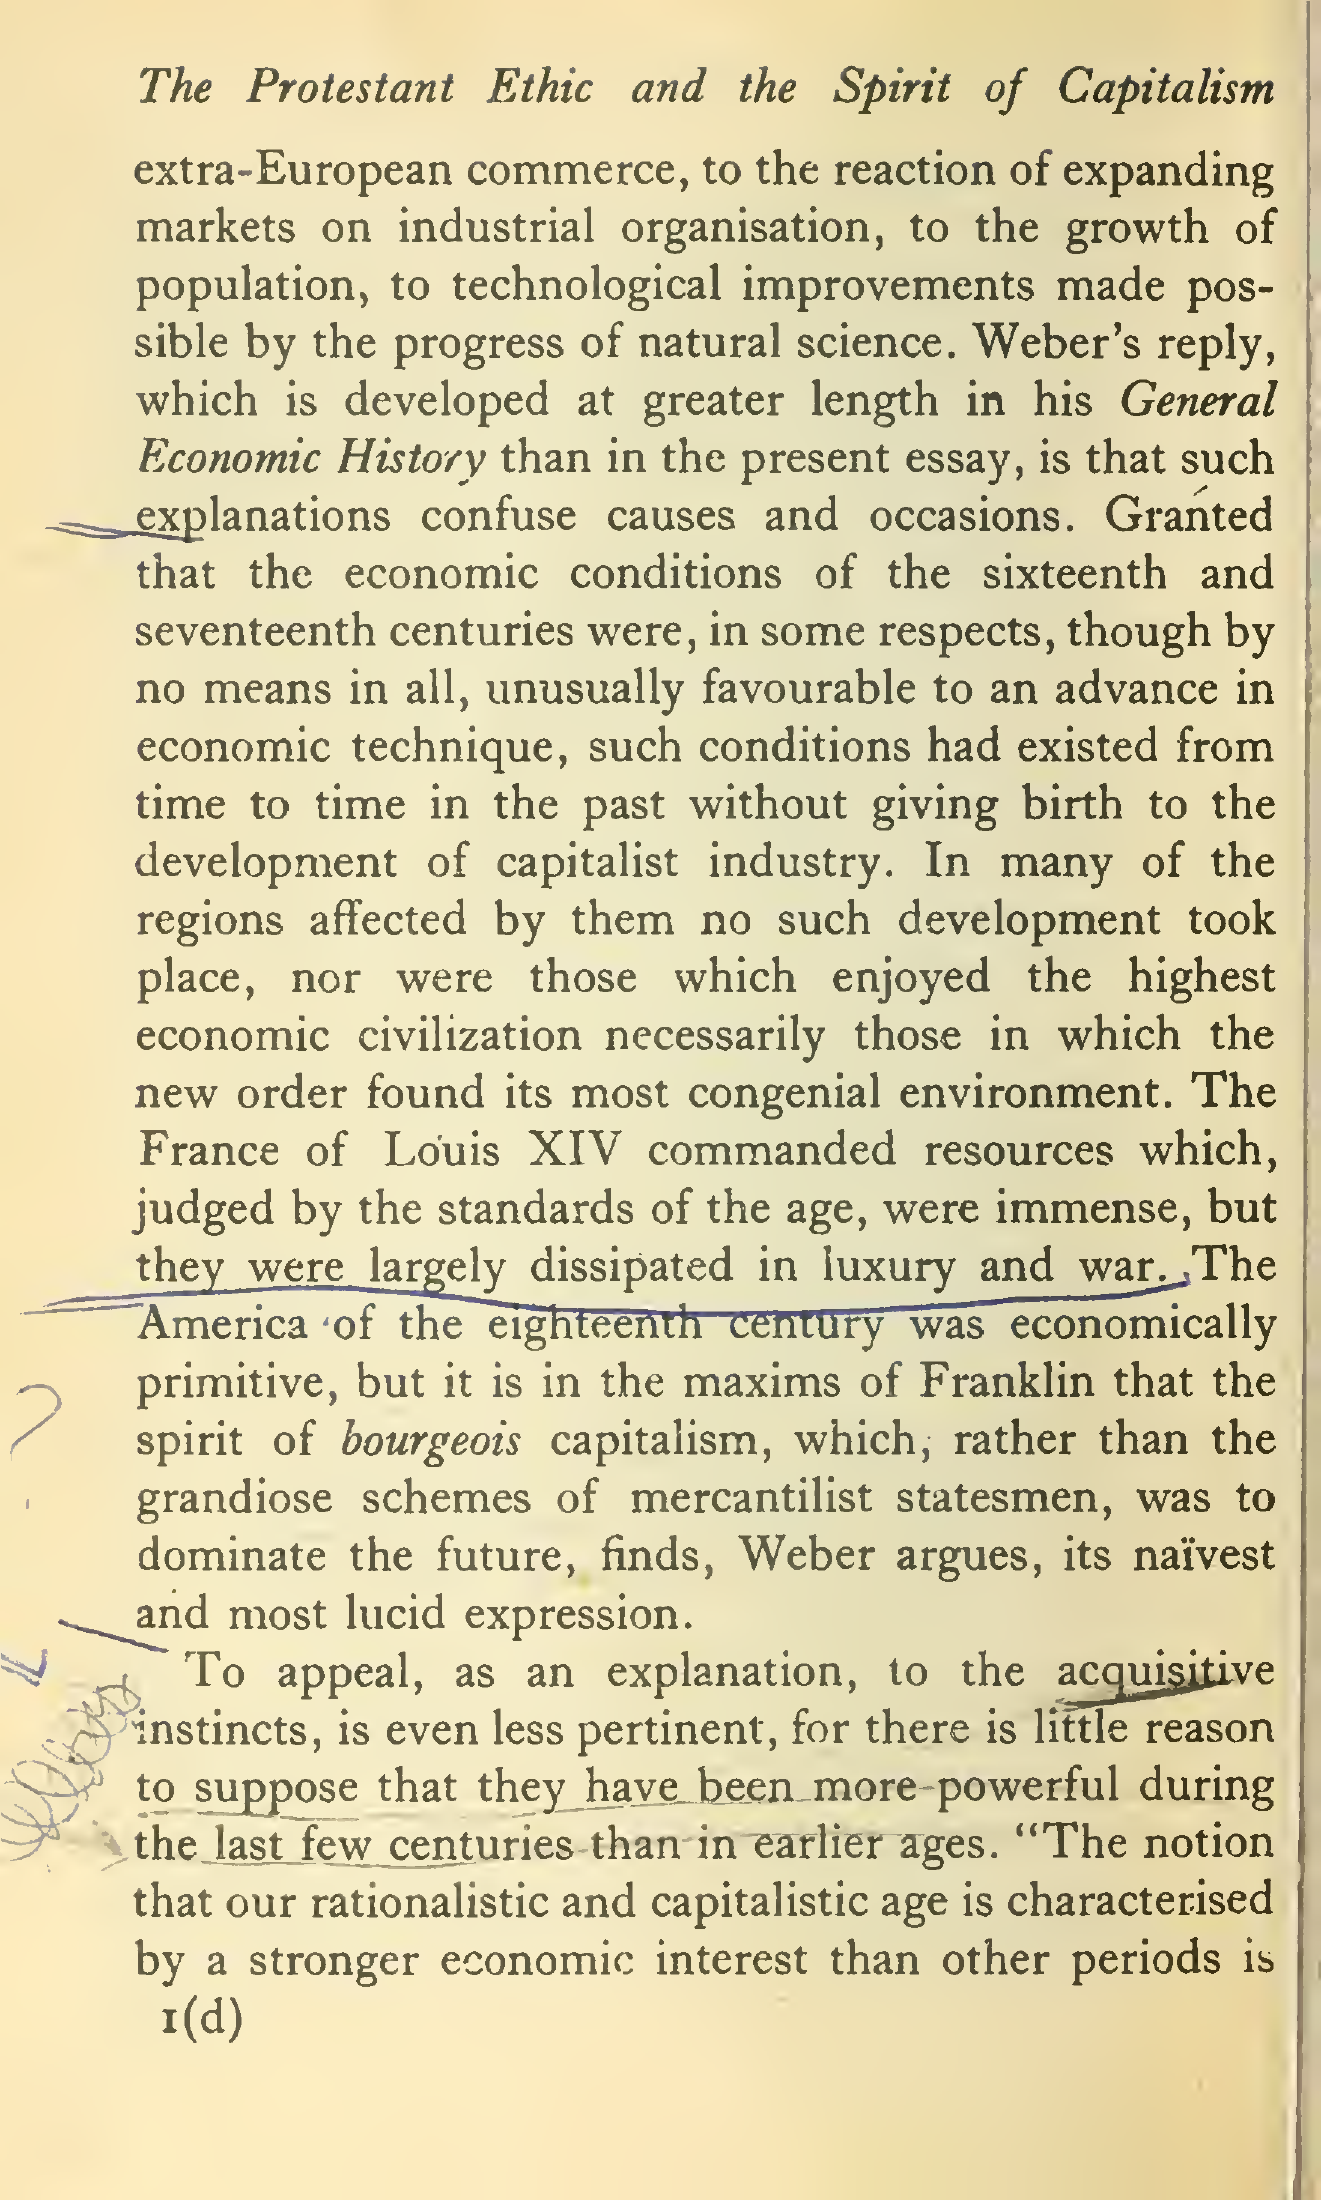 The Protestant Ethic and the Spirit of Capitalism
extra-European commerce, to the reaction of expanding
markets on industrial organisation, to the growth of
population, to technological improvements made pos-
sible by the progress of natural science. Weber's reply,
which is developed at greater length in his General
Economic History than in the present essay, is that such
explanations confuse causes and occasions. Granted
that the economic conditions of the sixteenth and
seventeenth centuries were, in some respects, though by
no means in all, unusually favourable to an advance in
economic technique, such conditions had existed from
time to time in the past without giving birth to the
development of capitalist industry. In many of the
regions affected by them no such development took
place, nor were those which enjoyed the highest
economic civilization necessarily those in which the
new order found its most congenial environment. The
France of Louis XIV commanded resources which,
judged by the standards of the age, were immense, but
they were largely dissipated in luxury and war. The
America of the eighteenth century was economically
primitive, but it is in the maxims of Franklin that the
spirit of bourgeois capitalism, which, rather than the
grandiose schemes of mercantilist statesmen, was to
dominate the future, finds, Weber argues, its naïvest
and most lucid expression.
To appeal, as an explanation, to the acquisitive
instincts, is even less pertinent, for there is little reason
to suppose that they have been more powerful during
the last few centuries than in earlier ages. "The notion
that our rationalistic and capitalistic age is characterised
by a stronger economic interest than other periods is
1(d)